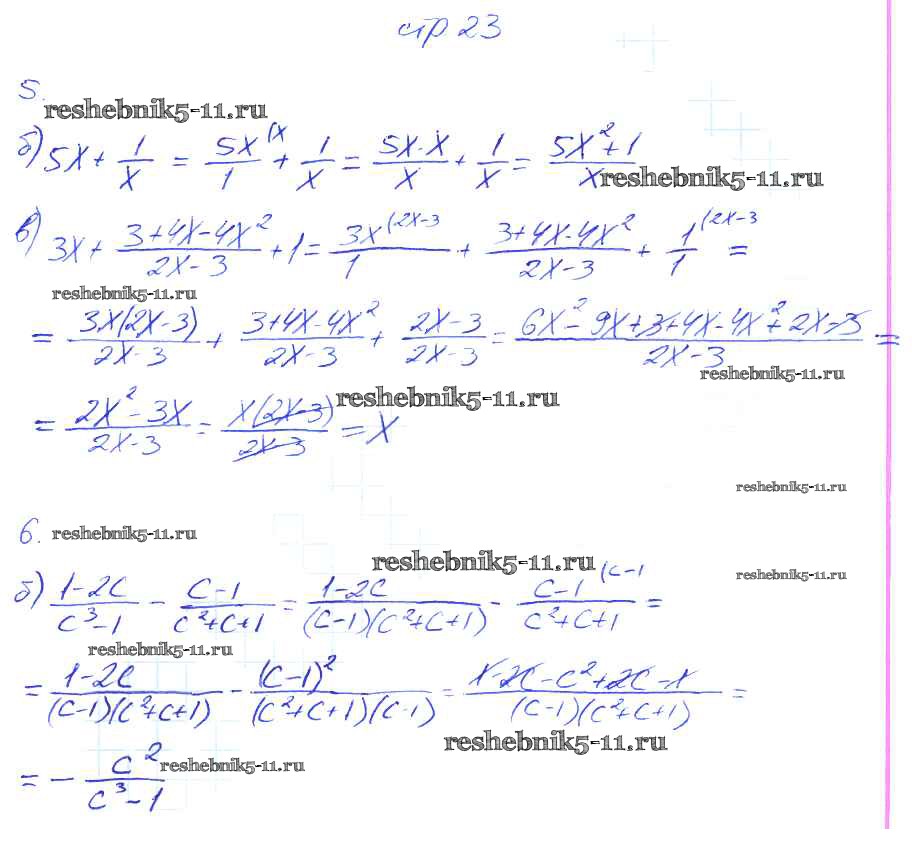 стр 23
5.
reshebnik5-11.ru
б) 5x + 1/x = 5x/1 (x + 1/x = 5x·x/x + 1/x = (5x²+1)/x
reshebnik5-11.ru
в) 3x + (3+4x-4x²)/(2x-3) + 1 = 3x/1 (2x-3 + (3+4x-4x²)/(2x-3) + 1/1 (2x-3 =
reshebnik5-11.ru
= 3x(2x-3)/(2x-3) + (3+4x-4x²)/(2x-3) + (2x-3)/(2x-3) = (6x²-9x+3+4x-4x²+2x-3)/(2x-3) =
reshebnik5-11.ru
reshebnik5-11.ru
= (2x²-3x)/(2x-3) = x(2x-3)/(2x-3) = x
reshebnik5-11.ru
6.
reshebnik5-11.ru
reshebnik5-11.ru
reshebnik5-11.ru
б) (1-2c)/(c³-1) - (c-1)/(c²+c+1) = (1-2c)/((c-1)(c²+c+1)) - (c-1)/(c²+c+1) (c-1 =
reshebnik5-11.ru
= (1-2c)/((c-1)(c²+c+1)) - (c-1)²/((c²+c+1)(c-1)) = (1-2c-c²+2c-1)/((c-1)(c²+c+1)) =
reshebnik5-11.ru
= - c²/(c³-1)
reshebnik5-11.ru